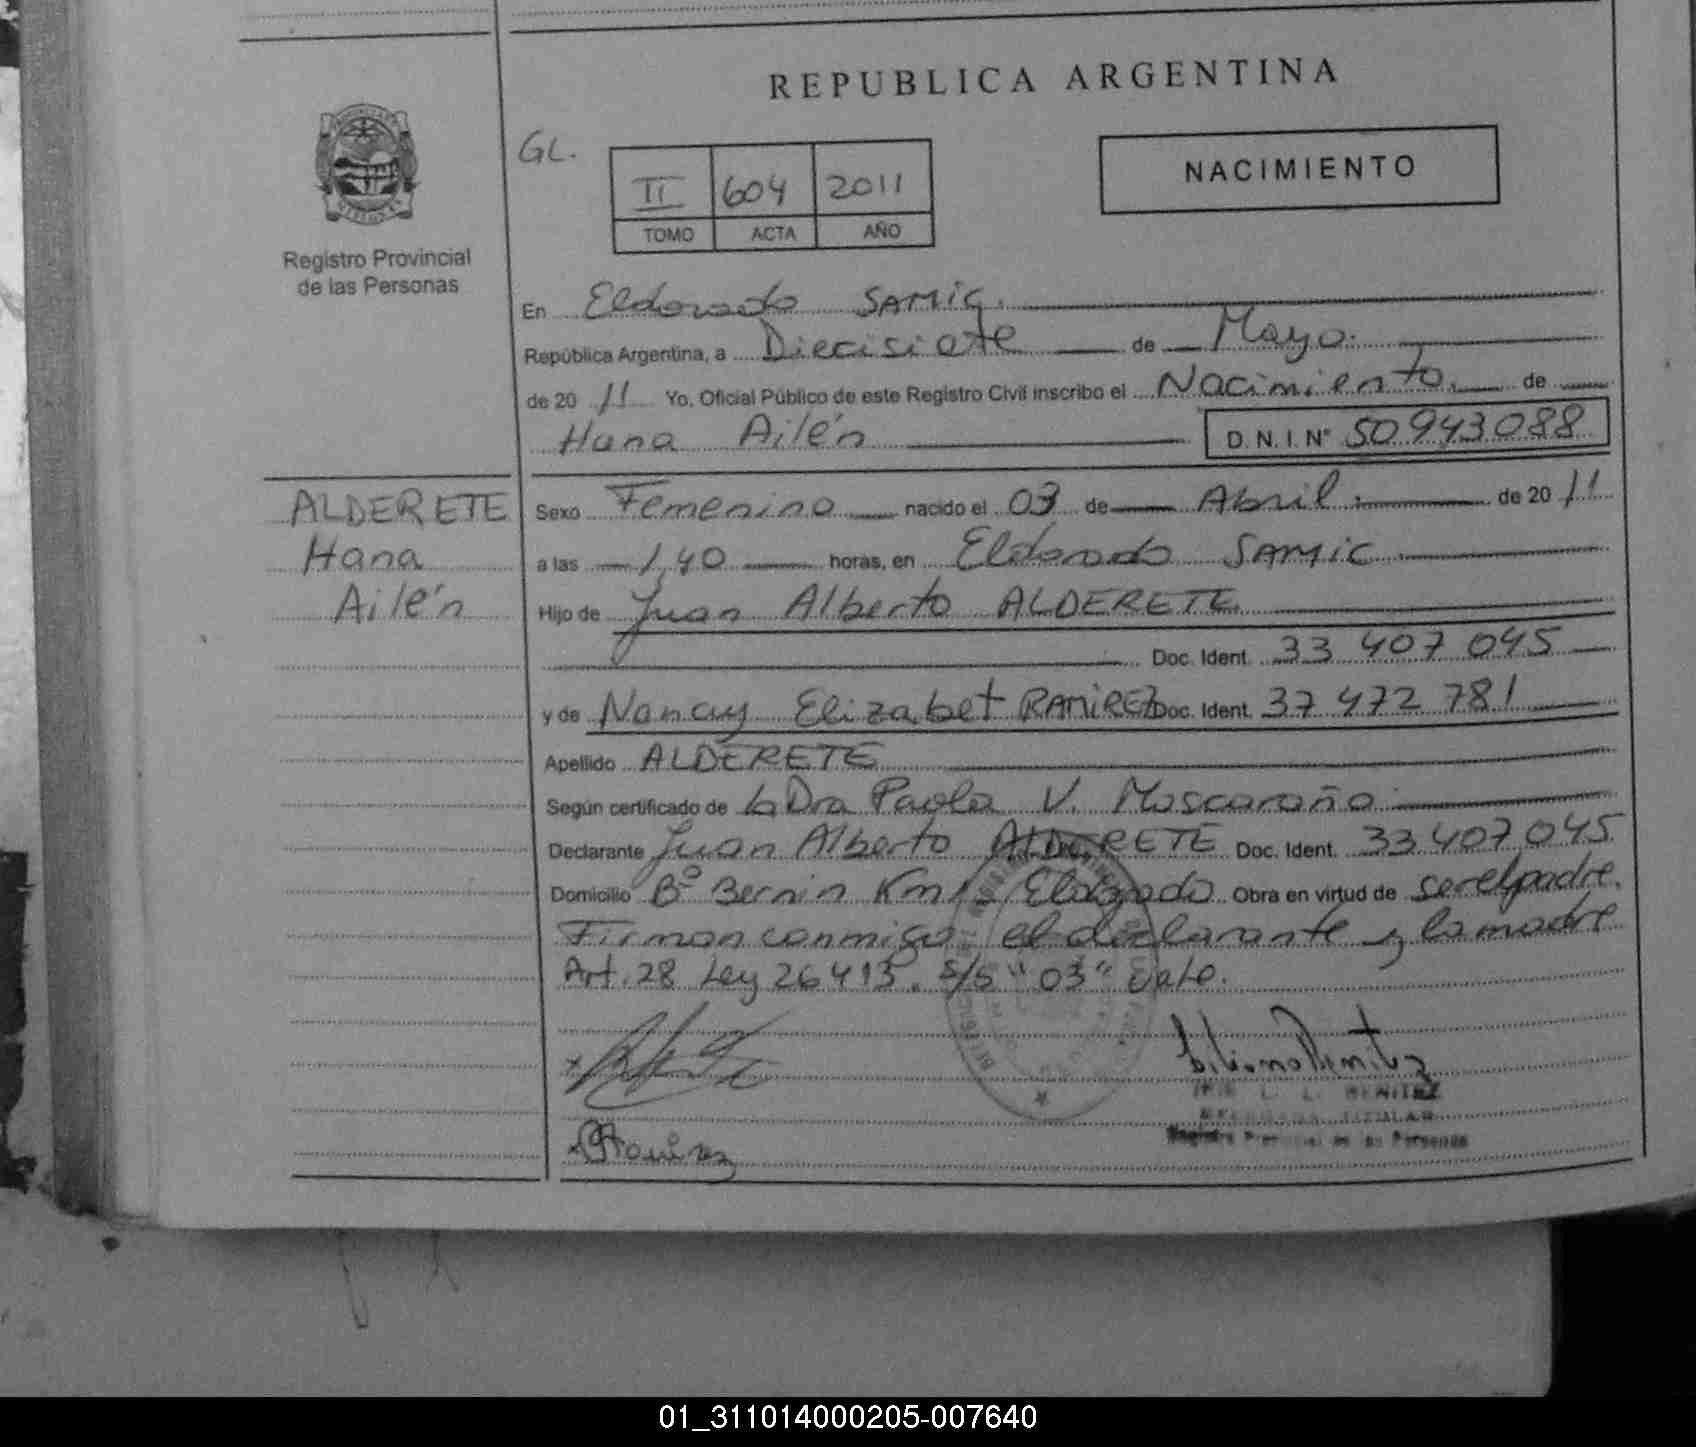 REPUBLICA ARGENTINA
GL.
II 604 2011
TOMO ACTA AÑO
NACIMIENTO
Registro Provincial
de las Personas
En Eldorado SAMIC.
República Argentina, a Diecisiete de Mayo.
de 20 11 Yo, Oficial Público de este Registro Civil inscribo el Nacimiento. de
Hana Ailén D.N.I.Nº 50943088
ALDERETE
Hana
Ailén
Sexo Femenino nacido el 03 de Abril de 20 11
a las 1,40 horas, en Eldorado SAMIC
Hijo de Juan Alberto ALDERETE
Doc. Ident. 33 407 045
y de Nancy Elizabet RAMIREZ Doc. Ident. 37 472 781
Apellido ALDERETE
Según certificado de la Dra Paola V. Moscaraño
Declarante Juan Alberto ALDERETE Doc. Ident. 33 407 045
Domicilio Bº Bernin Km 1 Eldorado Obra en virtud de ser el padre.
Firman conmigo el declarante y la madre
Art. 28 Ley 26413. s/s "03" Vale.
Ramirez
L. L. BENITEZ
TITULAR
Registro Provincial de las Personas
01_311014000205-007640